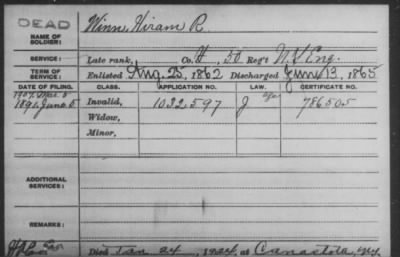 DEAD
Winn, Hiram R.
NAME OF SOLDIER:
SERVICE: Late rank, Co. H, 50 Reg't N.Y. Eng.
TERM OF SERVICE: Enlisted Aug. 25, 1862 Discharged June 13, 1865
DATE OF FILING. CLASS. APPLICATION NO. LAW. CERTIFICATE NO.
1891 June 5 Invalid, 1032597 J 786505
Widow,
Minor,
ADDITIONAL SERVICES:
REMARKS:
Died Jan 24, 1924, at Canastota, N.Y.